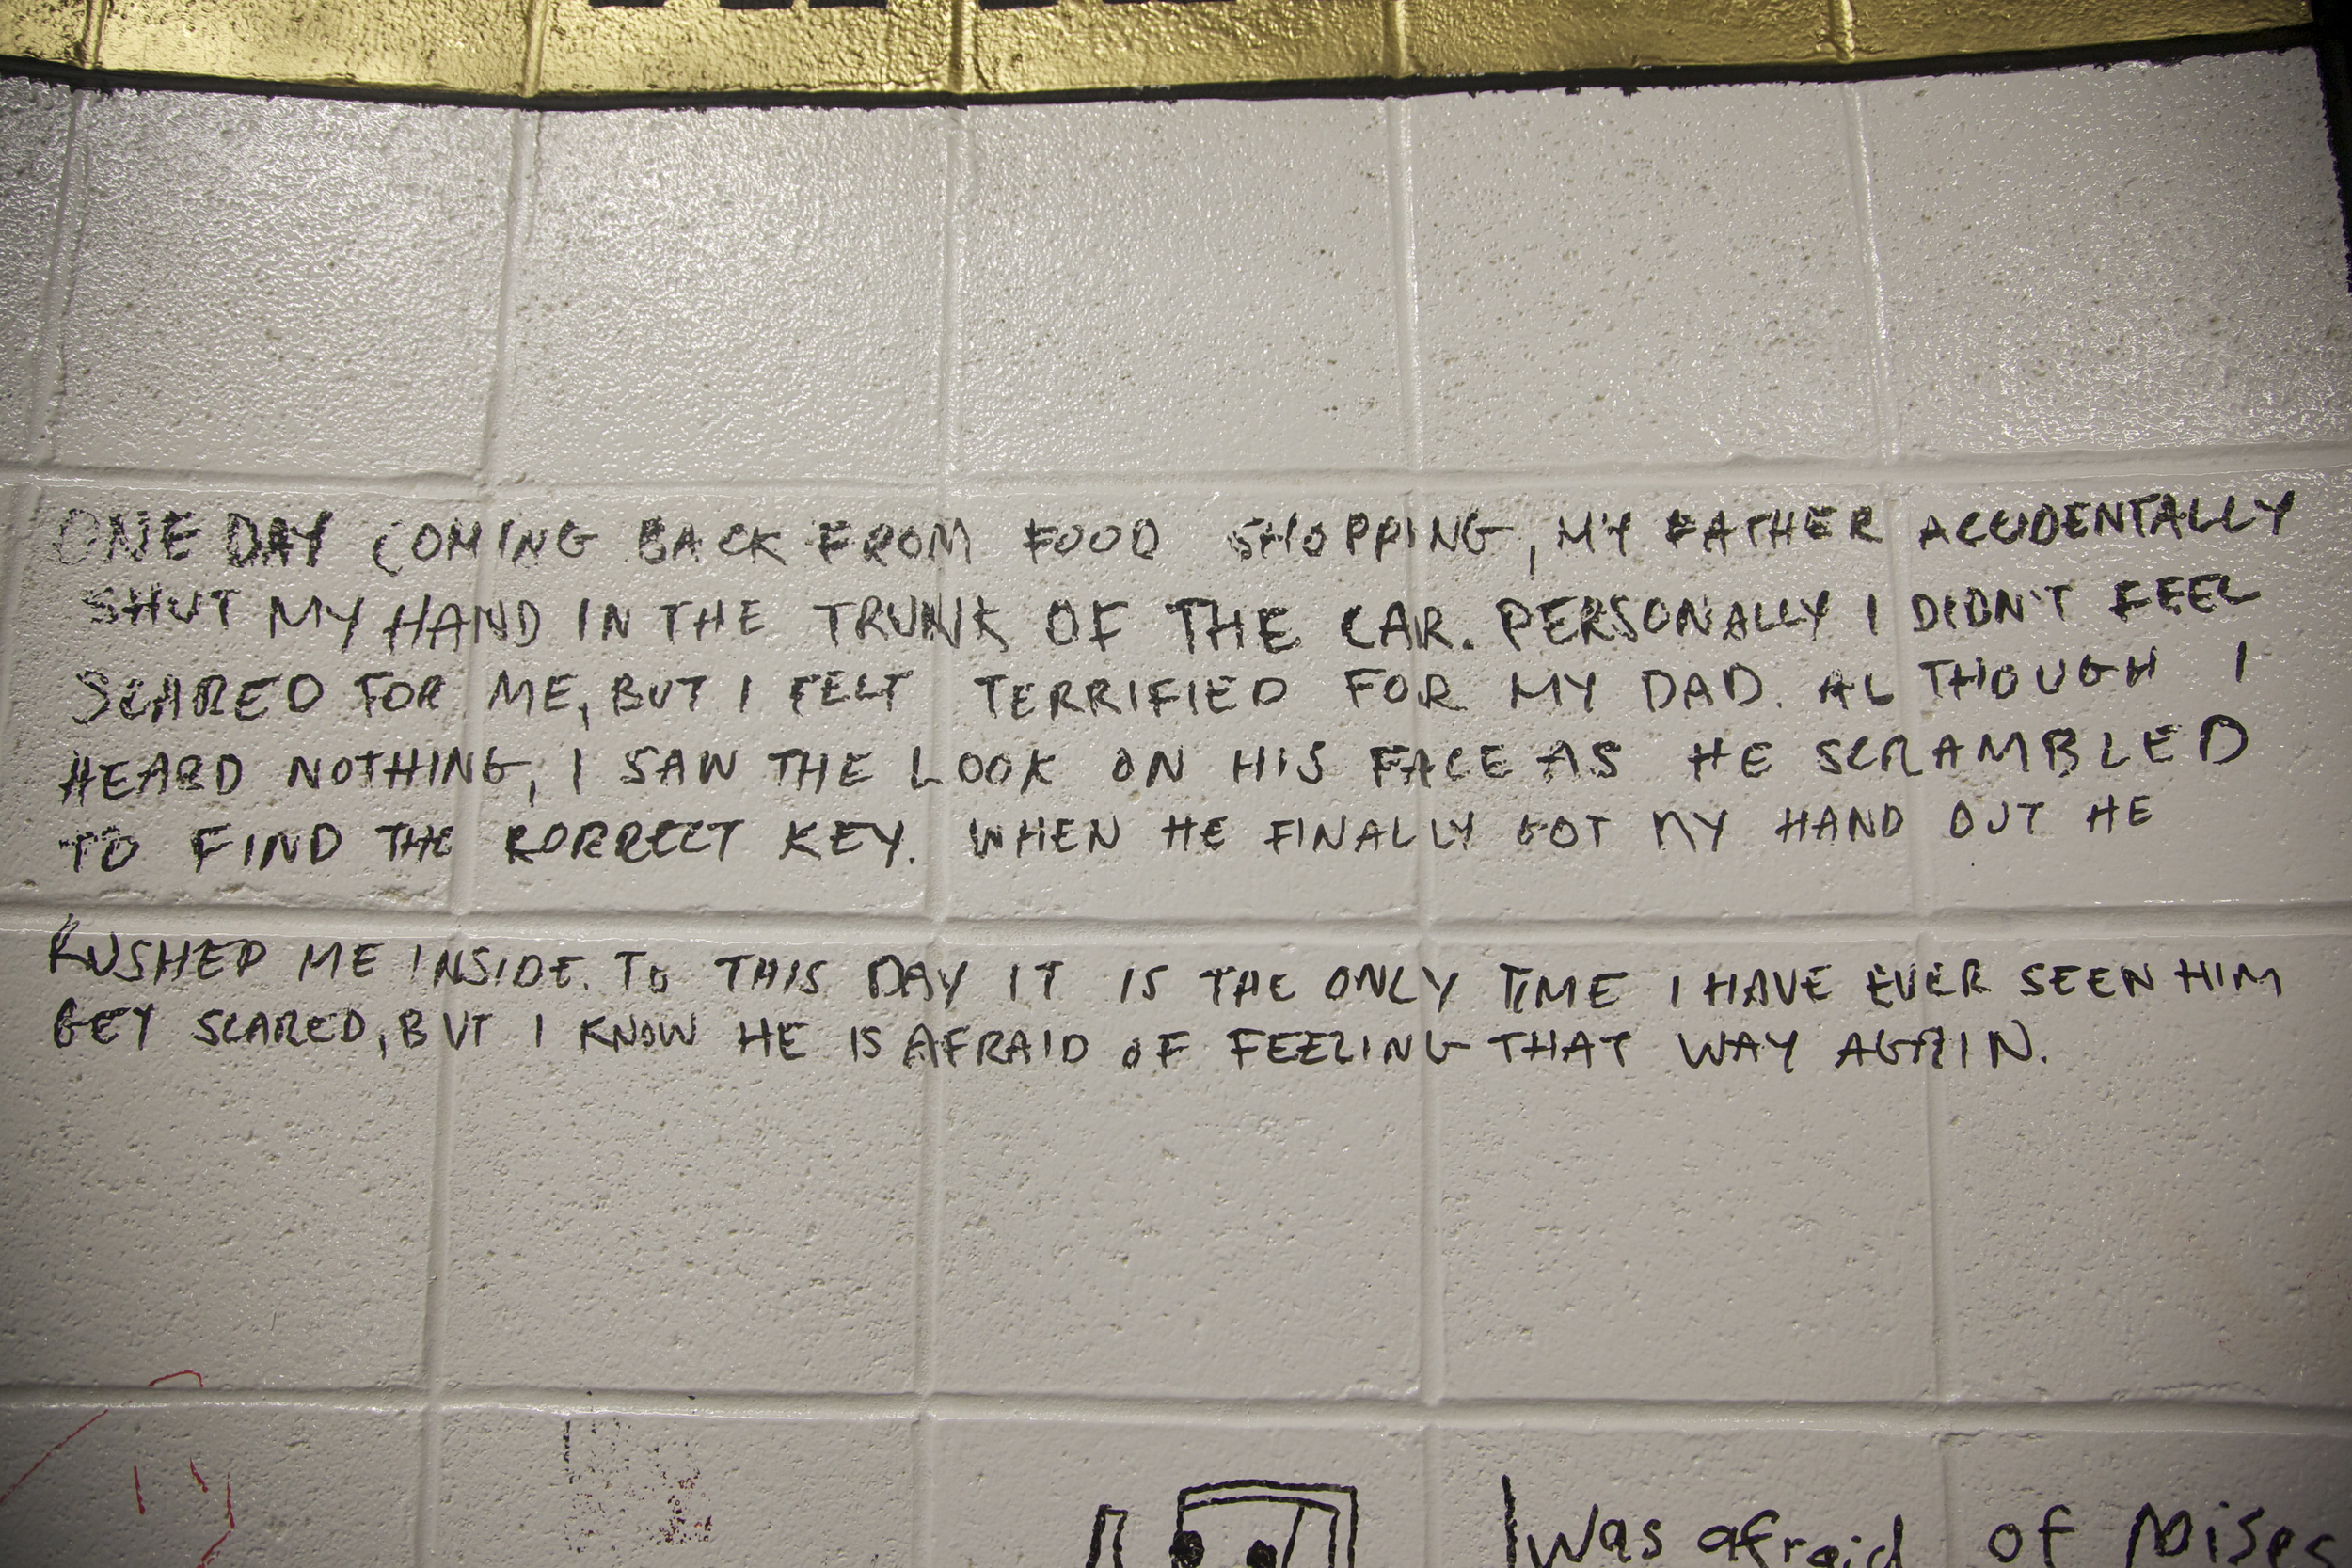 ONE DAY COMING BACK FROM FOOD SHOPPING, MY FATHER ACCIDENTALLY
SHUT MY HAND IN THE TRUNK OF THE CAR. PERSONALLY I DIDN'T FEEL
SCARED FOR ME, BUT I FELT TERRIFIED FOR MY DAD. ALTHOUGH I
HEARD NOTHING, I SAW THE LOOK ON HIS FACE AS HE SCRAMBLED
TO FIND THE KORRECT KEY. WHEN HE FINALLY GOT MY HAND OUT HE
RUSHED ME INSIDE. TO THIS DAY IT IS THE ONLY TIME I HAVE EVER SEEN HIM
GET SCARED, BUT I KNOW HE IS AFRAID OF FEELING THAT WAY AGAIN.
I was afraid of Noises